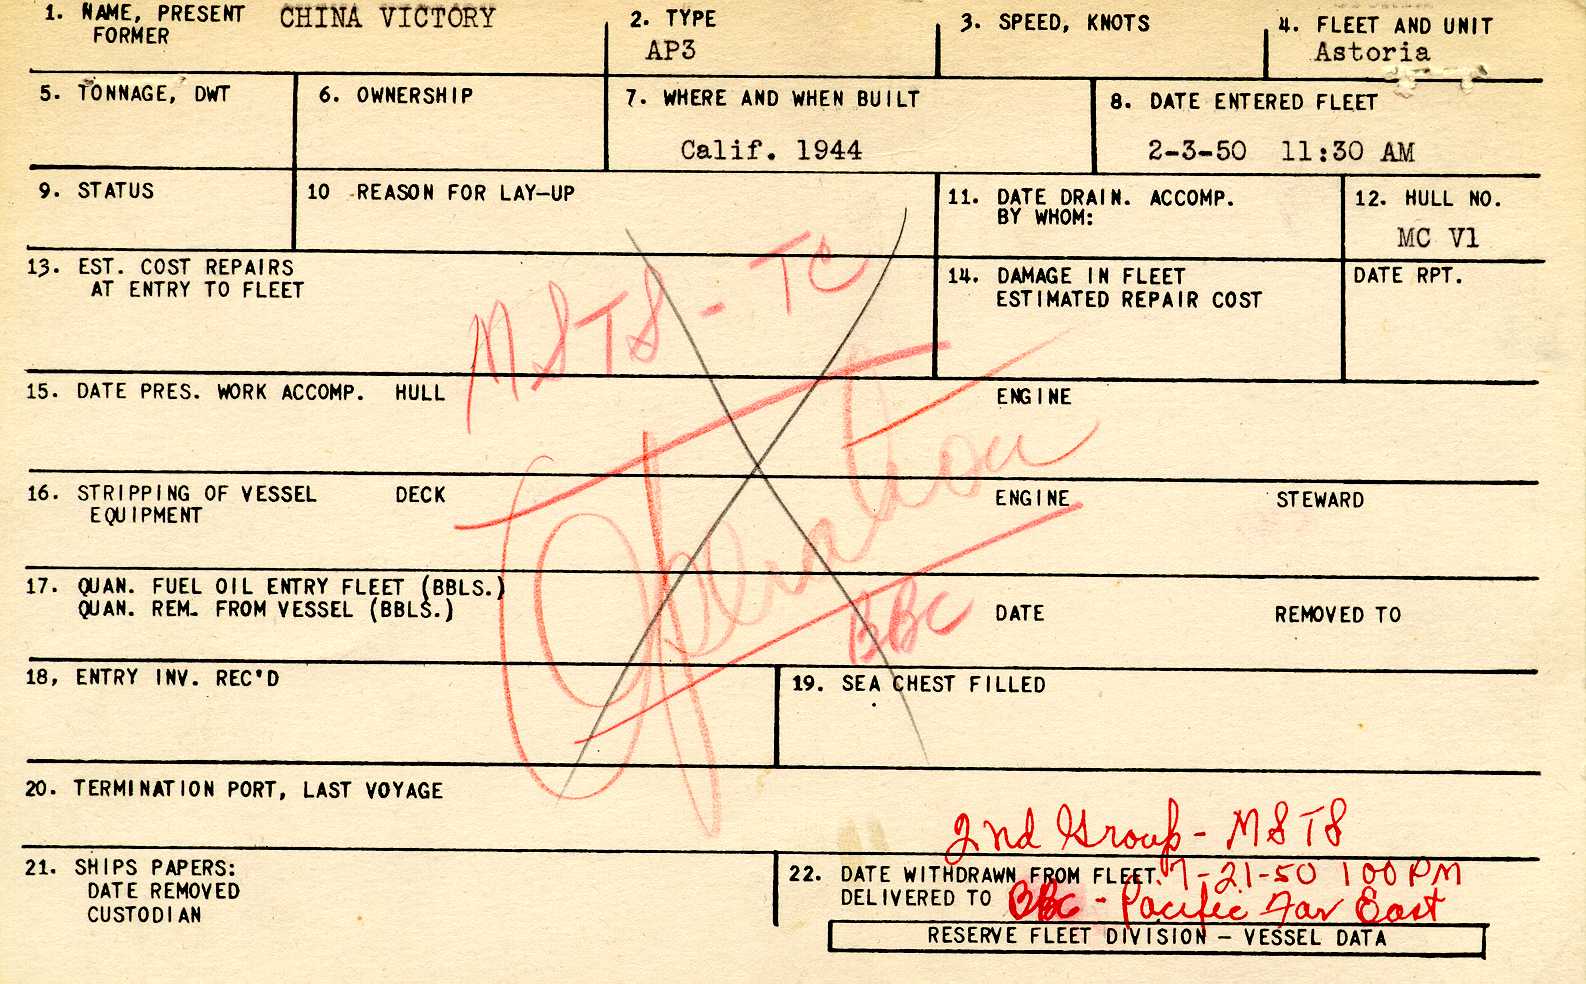 1. NAME, PRESENT CHINA VICTORY
FORMER
2. TYPE
AP3
3. SPEED, KNOTS
4. FLEET AND UNIT
Astoria
5. TONNAGE, DWT
6. OWNERSHIP
7. WHERE AND WHEN BUILT
Calif. 1944
8. DATE ENTERED FLEET
2-3-50 11:30 AM
9. STATUS
10 REASON FOR LAY-UP
11. DATE DRAIN. ACCOMP.
BY WHOM:
12. HULL NO.
MC V1
13. EST. COST REPAIRS
AT ENTRY TO FLEET
MSTS - TC
14. DAMAGE IN FLEET
ESTIMATED REPAIR COST
DATE RPT.
15. DATE PRES. WORK ACCOMP. HULL
ENGINE
Operation
16. STRIPPING OF VESSEL DECK
EQUIPMENT
ENGINE
STEWARD
17. QUAN. FUEL OIL ENTRY FLEET (BBLS.)
QUAN. REM. FROM VESSEL (BBLS.)
BBC
DATE
REMOVED TO
18, ENTRY INV. REC'D
19. SEA CHEST FILLED
20. TERMINATION PORT, LAST VOYAGE
2nd Group - MSTS
21. SHIPS PAPERS:
DATE REMOVED
CUSTODIAN
22. DATE WITHDRAWN FROM FLEET. 7-21-50 100 PM
DELIVERED TO BBC - Pacific Far East
RESERVE FLEET DIVISION - VESSEL DATA